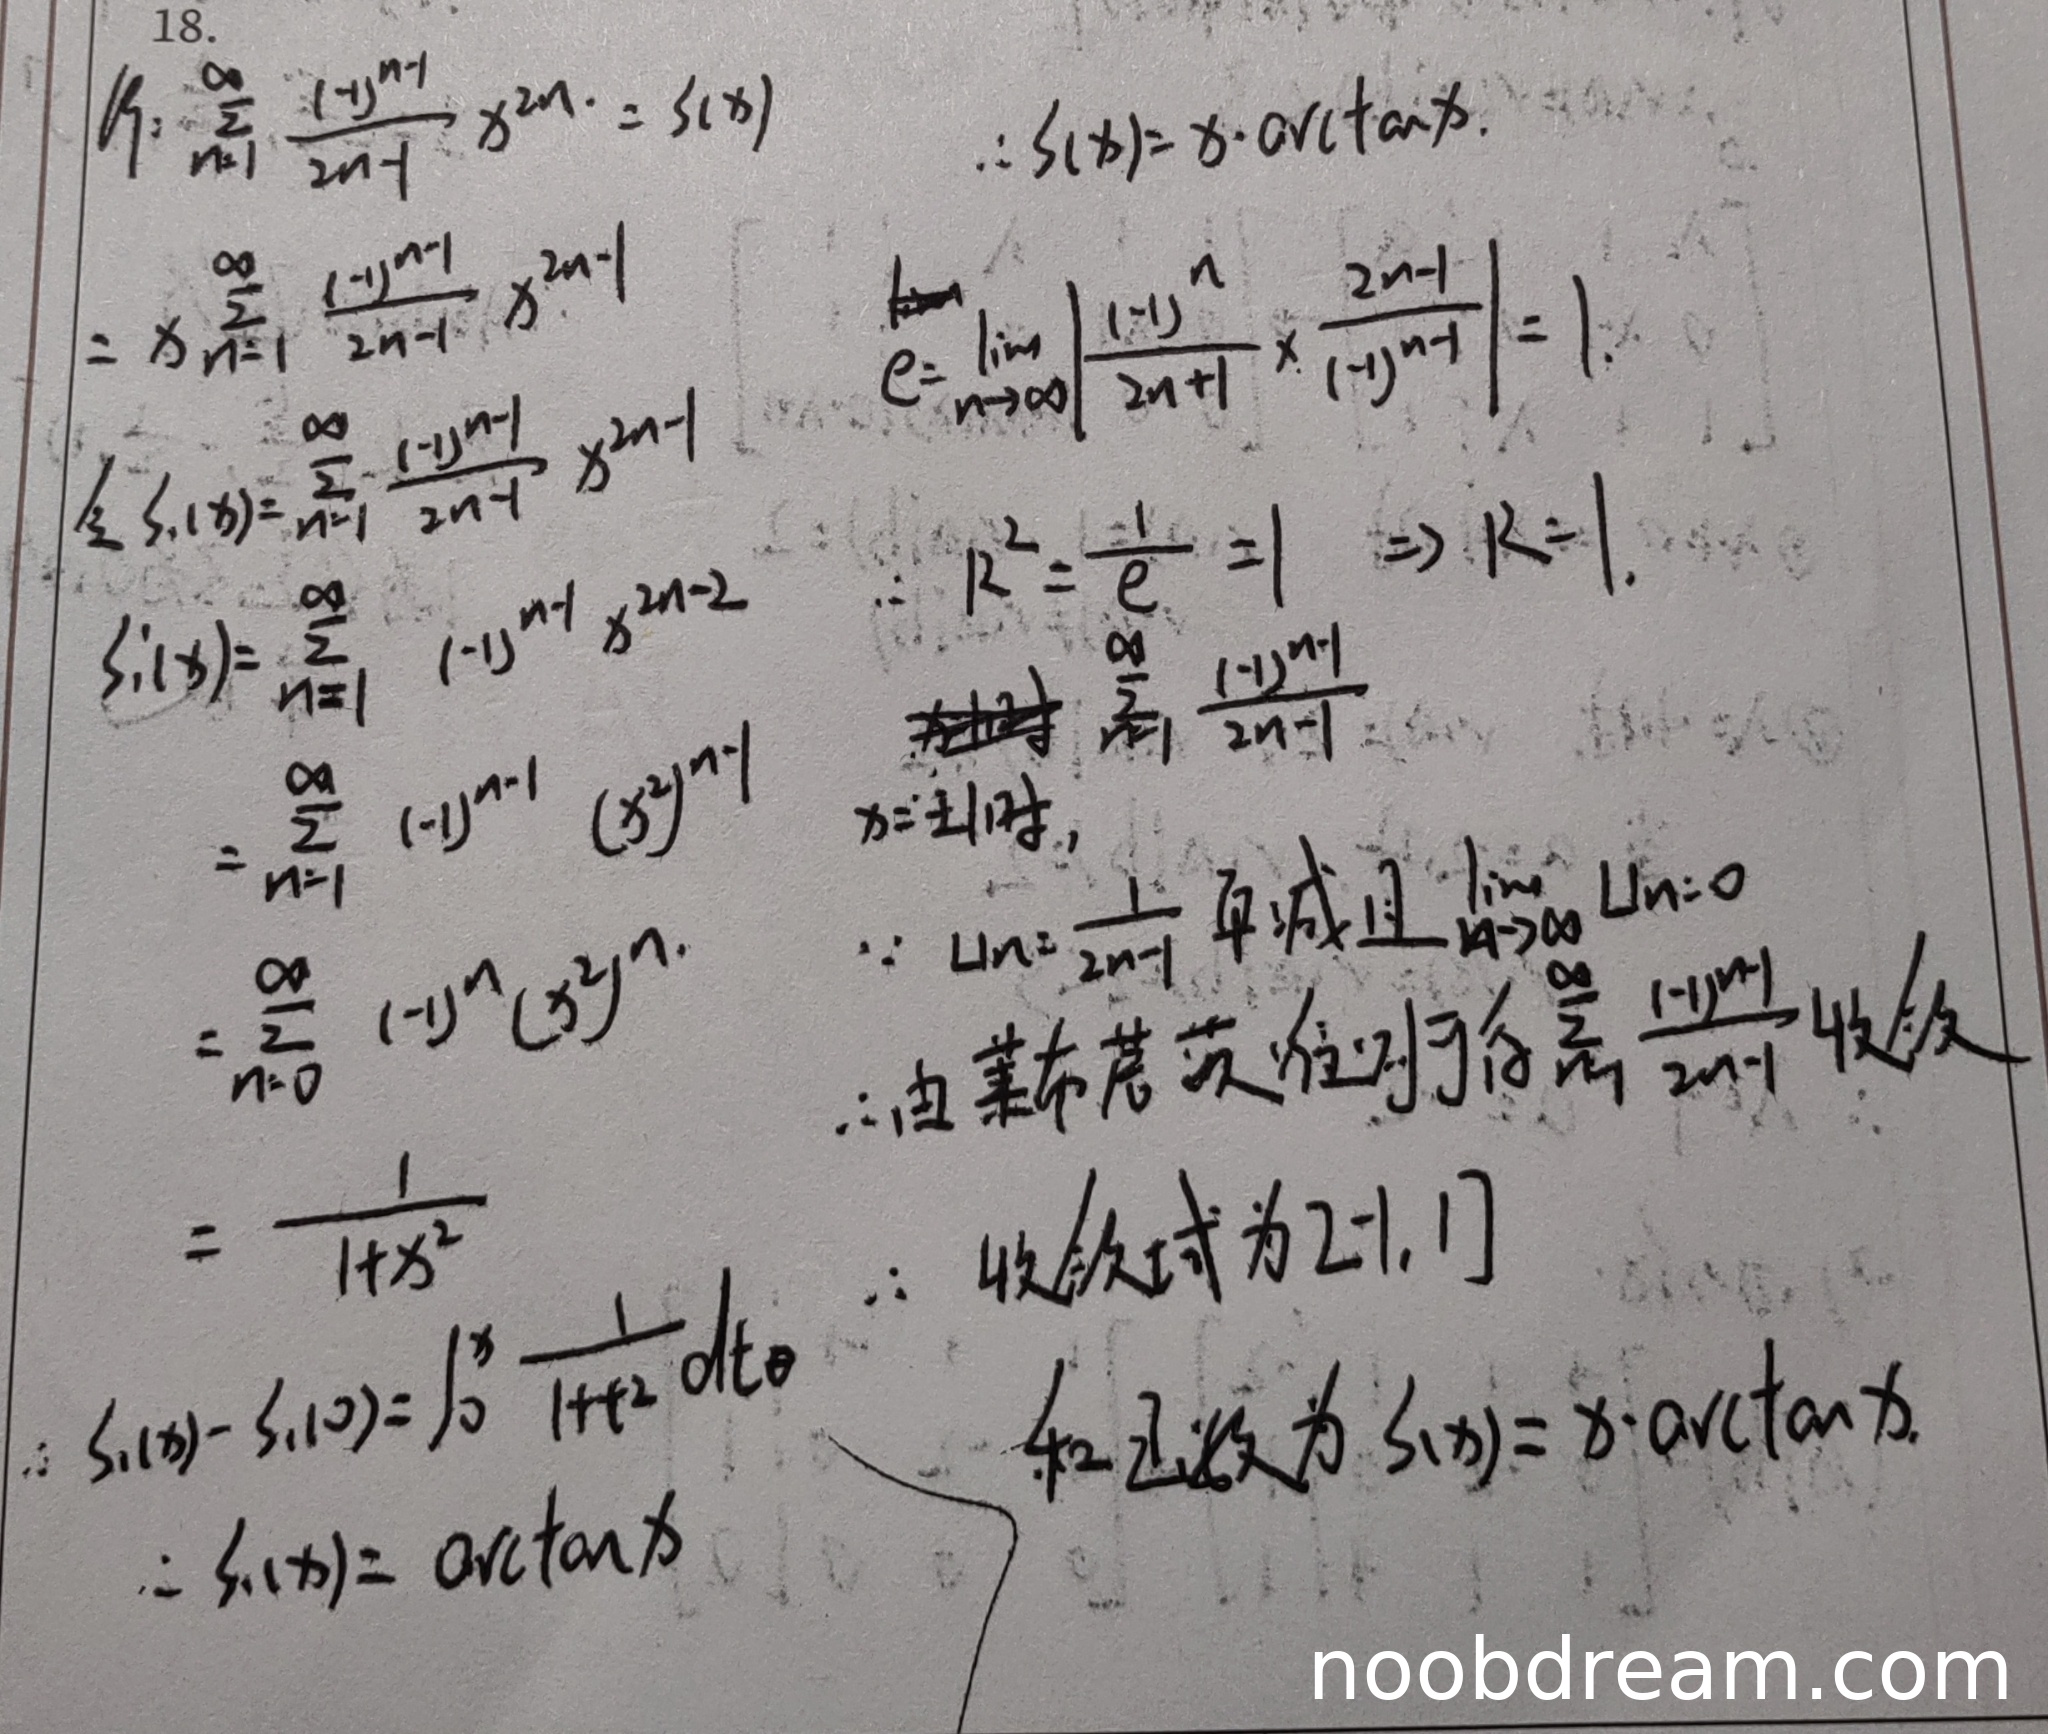 18.
解: \sum_{n=1}^{∞} \frac{(-1)^{n-1}}{2n-1} x^{2n} . = S(x)
= x \sum_{n=1}^{∞} \frac{(-1)^{n-1}}{2n-1} x^{2n-1}
令 S₁(x) = \sum_{n=1}^{∞} \frac{(-1)^{n-1}}{2n-1} x^{2n-1}
S₁'(x) = \sum_{n=1}^{∞} (-1)^{n-1} x^{2n-2}
= \sum_{n=1}^{∞} (-1)^{n-1} (x²)^{n-1}
= \sum_{n=0}^{∞} (-1)^n (x²)^n.
= \frac{1}{1+x²}
∴ S₁(x) - S₁(0) = ∫_0^x \frac{1}{1+t²} dt
∴ S₁(x) = arctan x
∴ S(x) = x · arctan x.
ρ = \lim_{n→∞} | \frac{(-1)^n}{2n+1} × \frac{2n-1}{(-1)^{n-1}} | = 1.
∴ R² = \frac{1}{ρ} = 1 ⇒ R = 1.
\sum_{n=1}^{∞} \frac{(-1)^{n-1}}{2n-1}
x = ±1时,
∵ Un = \frac{1}{2n-1} 单减且 \lim_{n→∞} Un = 0
∴ 由莱布尼茨准则可得 \sum_{n=1}^{∞} \frac{(-1)^{n-1}}{2n-1} 收敛
∴ 收敛域为 [-1, 1]
和函数为 S(x) = x · arctan x.
noobdream.com